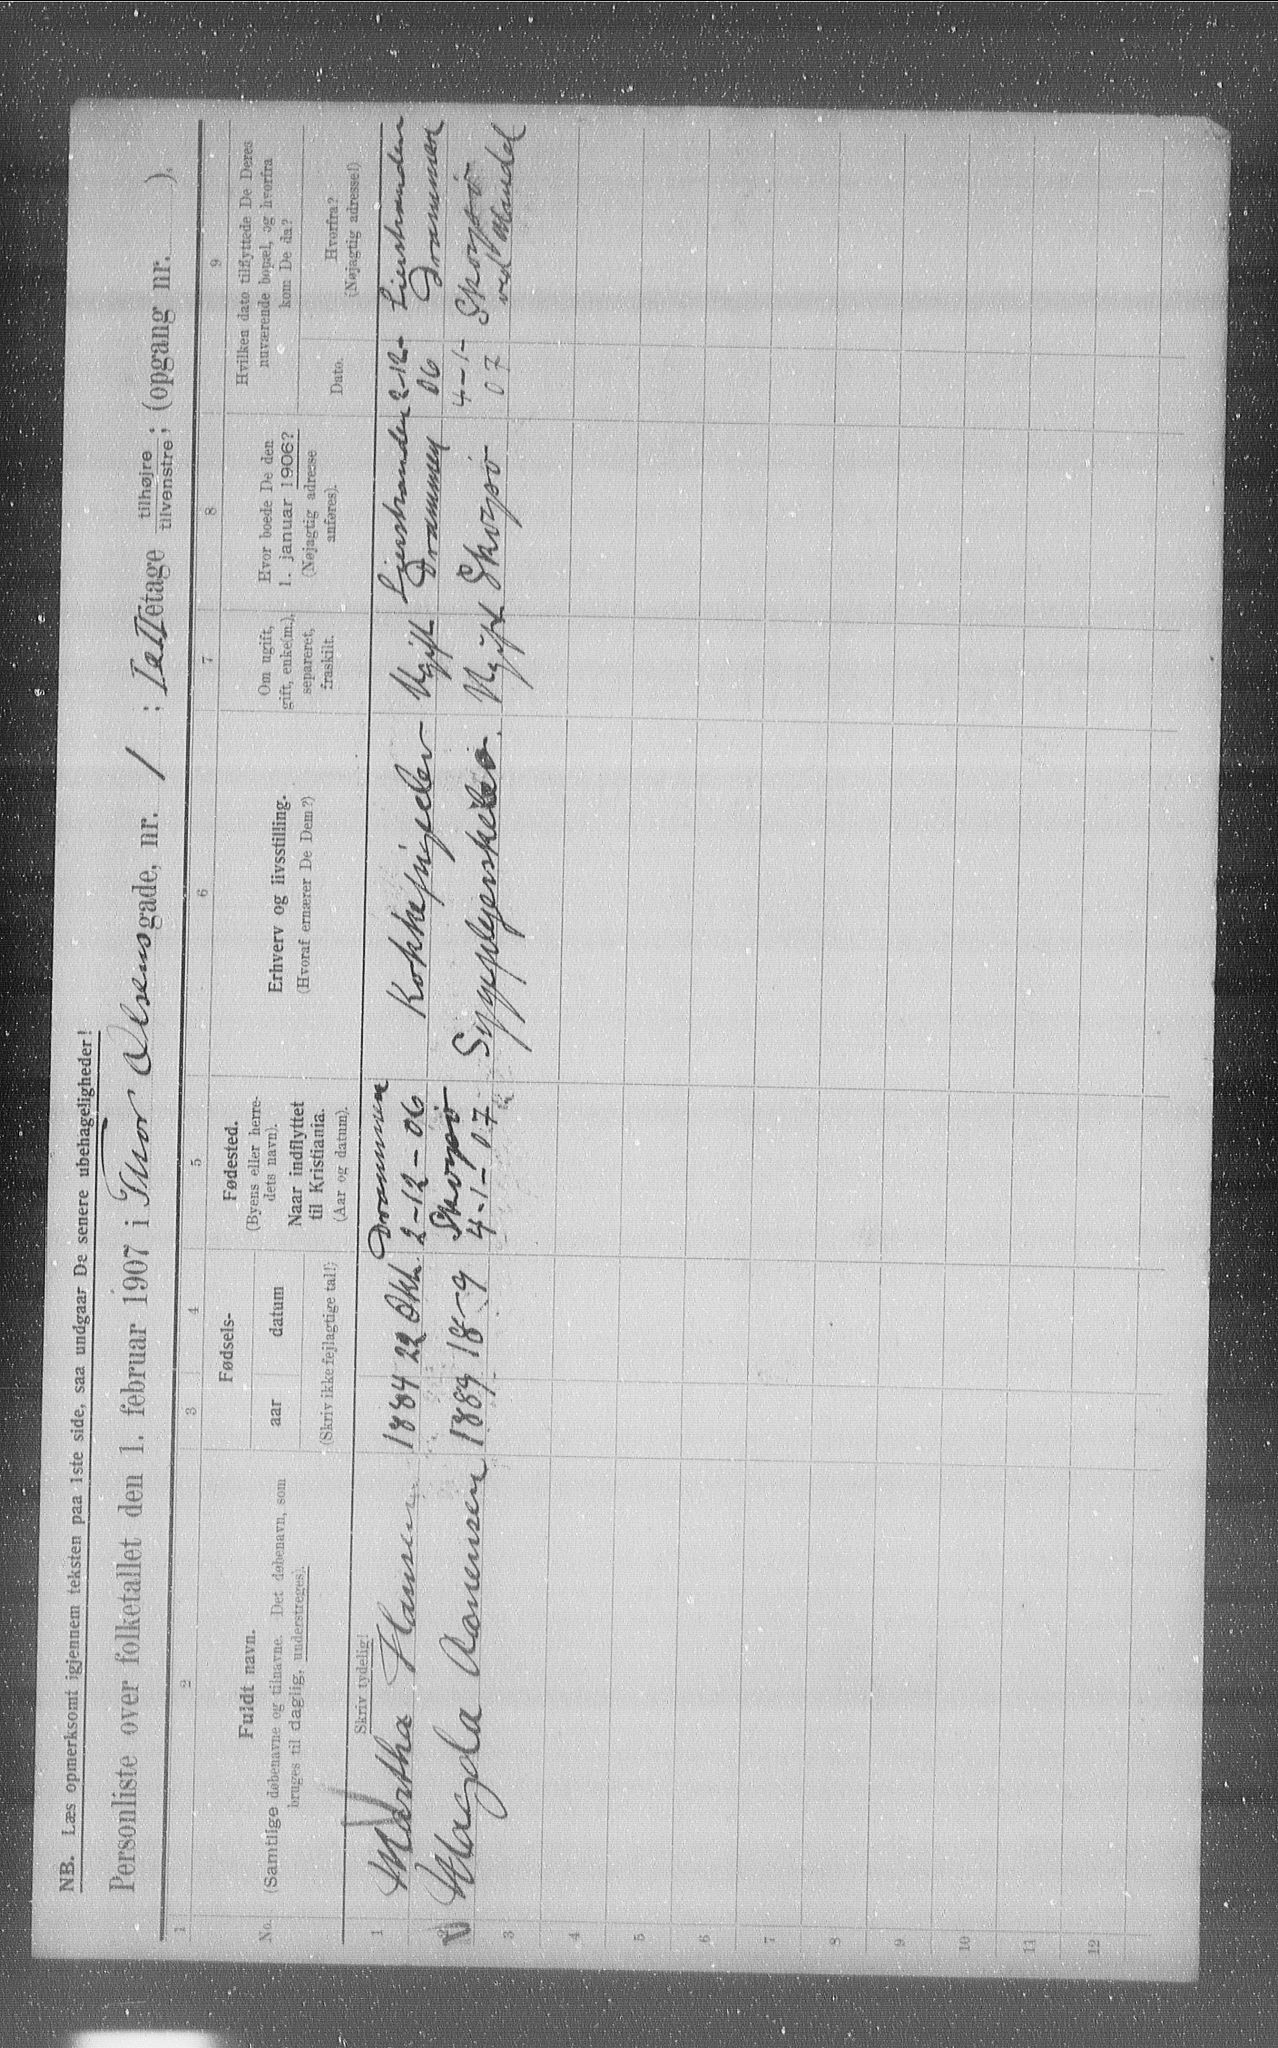 NB. Læs opmerksomt igjennem teksten paa 1ste side, saa undgaar De senere ubehageligheder!
Personliste over folketallet den 1. februar 1907 i Thor Olsens gade, nr. 1 ; I & II etage tilhøjre tilvenstre ; (opgang nr. ).
1 2 3 4 5 6 7 8 9
No.
Fuldt navn.
(Samtlige døbenavne og tilnavne. Det døbenavn, som
bruges til daglig, understreges).
Skriv tydelig!
Fødsels-
aar datum
(Skriv ikke fejlagtige tal!)
Fødested.
(Byens eller herre-
dets navn).
Naar indflyttet
til Kristiania.
(Aar og datum).
Erhverv og livsstilling.
(Hvoraf ernærer De Dem?)
Om ugift,
gift, enke(m.),
separeret,
fraskilt.
Hvor boede De den
1. januar 1906?
(Nøjagtig adresse
anføres).
Hvilken dato tilflyttede De Deres
nuværende bopæl, og hvorfra
kom De da?
Dato.
Hvorfra?
(Nøjagtig adresse!)
1 Martha Hansen 1884 22 Okt. Drammen
2-12-06 Kokkepige Ugift Lierstranden
Drammen 2-12-
06 Lierstranden
Drammen
2 Magda Aanensen 1889 18-9
4-1-07 Sygeplejerske Ugift 4-1-
07
ved
3
4
5
6
7
8
9
10
11
12